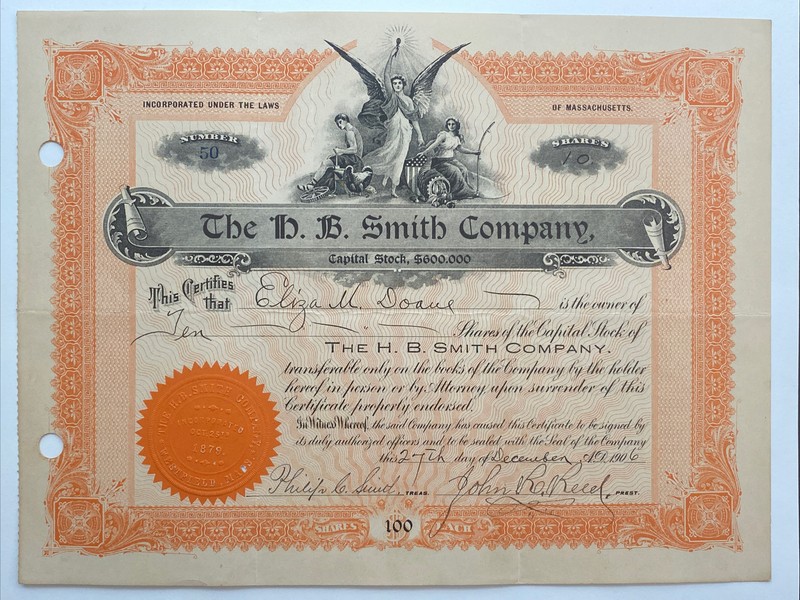 INCORPORATED UNDER THE LAWS OF MASSACHUSETTS.
NUMBER
50
SHARES
10
The H. B. Smith Company,
Capital Stock, $600.000
This Certifies that Eliza M. Doane is the owner of
Ten Shares of the Capital Stock of
THE H. B. SMITH COMPANY.
transferable only on the books of the Company by the holder
hereof in person or by Attorney upon surrender of this
Certificate properly endorsed.
In Witness Whereof, the said Company has caused this Certificate to be signed by
its duly authorized officers and to be sealed with the Seal of the Company
this 27th day of December A.D. 1906
Philip C. Smith, TREAS. John R. Reed, PREST.
THE H.B. SMITH COMPANY
1879
WESTFIELD, MASS
SHARES 100 EACH